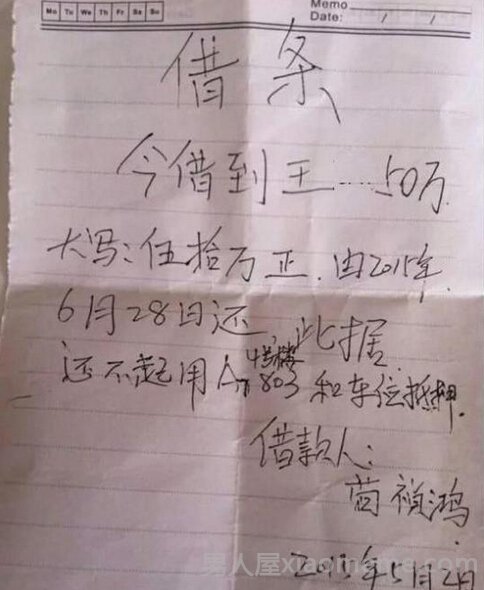 Mo Tu We Th Fr Sa Su
Memo
Date: / /
借条
今借到王……50万
大写:伍拾万正.由2015年
6月28日还.此据
4号楼
还不起用A 803和车位抵押.
借款人:
祯鸿
2015年5月2日
男人屋xiaomeme.com